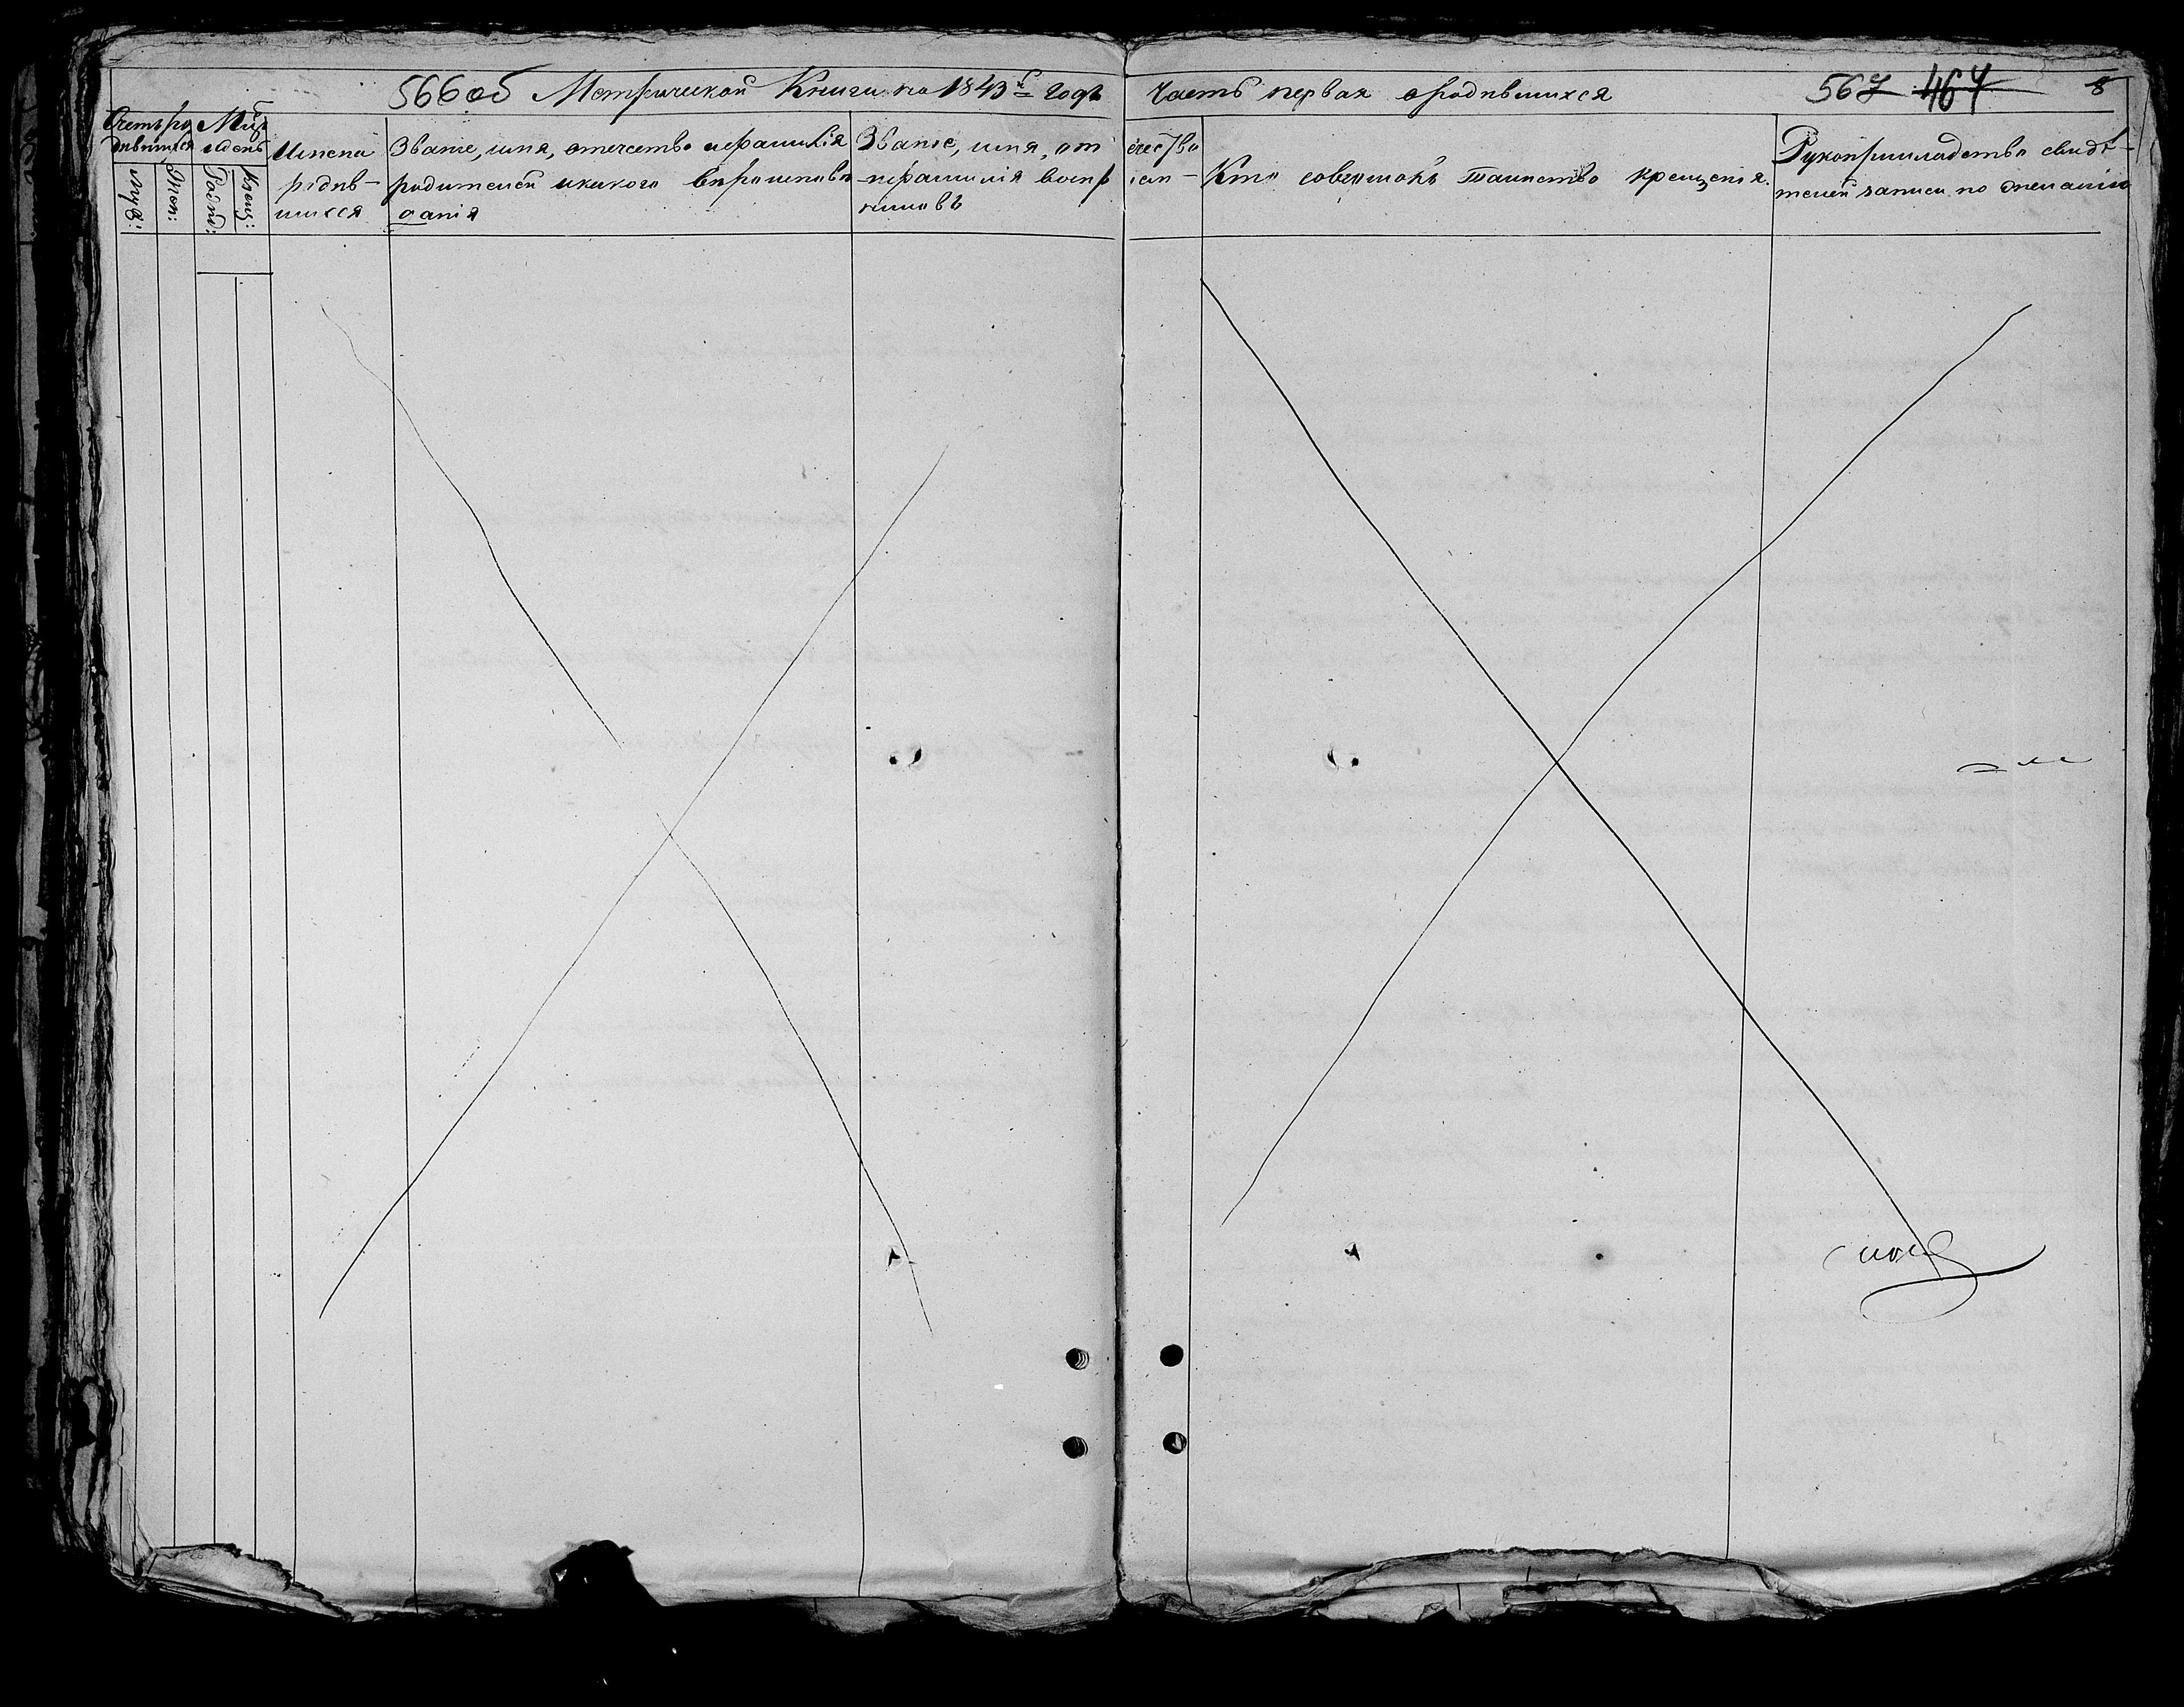 566об Метрической Книги на 1843й годъ Часть первая о родившихся 567 467 8
Счетъ ро
дившихся
Муж:
Жен:
Мцъ
и день
Рожд:
Крещ:
Имена
родив-
шихся
Званіе, имя, отечество и фамилія
родителей и какого вѣроисповѣ
данія
Званіе, имя, от
и фамилія воспр
никовъ
ечество
іем-
Кто совершалъ таинство крещенія.
Рукоприкладство свидѣ-
телей записи по желанію